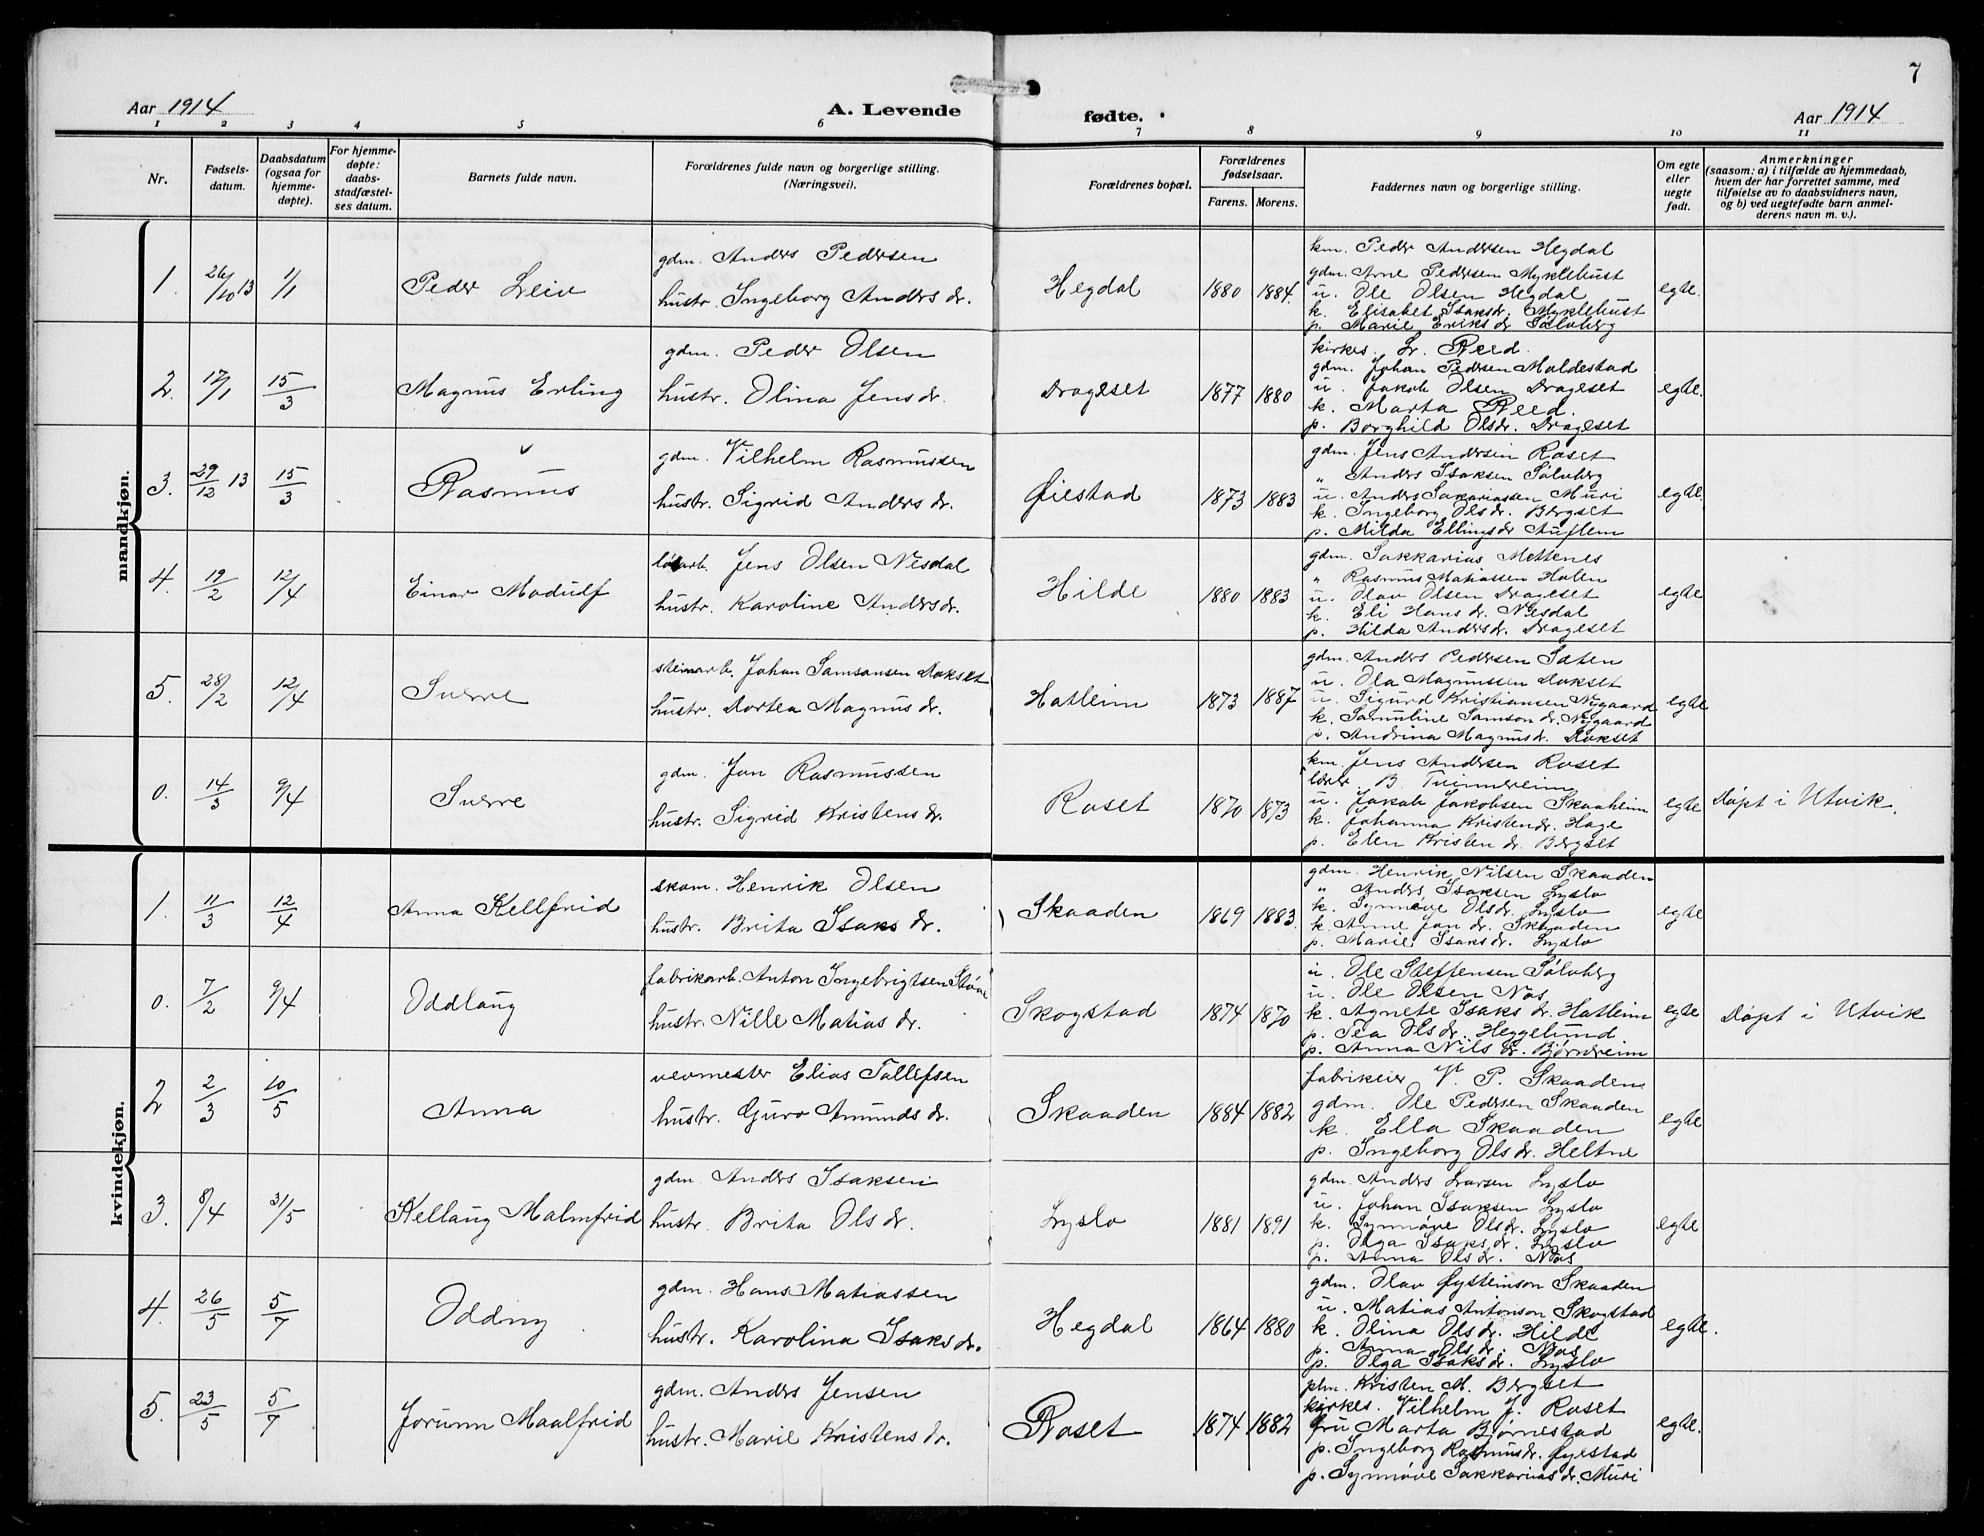 7
Aar 1914
A. Levende
fødte.
Aar 1914
1 2 3 4 5 6 7 8 9 10 11
Nr.
Fødsels-
datum.
Daabsdatum
(ogsaa for
hjemme-
døpte).
For hjemme-
døpte:
daabs-
stadfæstel-
ses datum.
Barnets fulde navn.
Forældrenes fulde navn og borgerlige stilling.
(Næringsvei).
Forældrenes bopæl.
Forældrenes
fødselsaar.
Farens. Morens.
Faddernes navn og borgerlige stilling.
Om egte
eller
uegte
født.
Anmerkninger
(saasom: a) i tilfælde av hjemmedaab,
hvem der har forrettet samme, med
tilføielse av to daabsvidners navn,
og b) ved uegtefødte barn anmel-
derens navn m. v.).
mandkjøn.
1. 26/10 13 1/1 Peder Leiv
gdm. Anders Pedersen
hustr. Ingeborg Anders dr.
Hegdal 1880 1884.
km. Peder Andersen Hegdal
gdm. Arne Pedersen Myklebust
u. Ole Olsen Hegdal
k. Elisabet Isaksdr. Myklebust
p. Marie Eriks dr Sølvberg
egte.
2. 17/1 15/3 Magnus Erling
gdm. Peder Olsen
hustr. Olina Jensdr.
Drageset 1877 1880
kirkes. Reed.
gdm. Johan Pedersen Moldestad
u. Jakob Olsen Drageset
k. Marta Reed.
p. Borghild Olsdr. Drageset
egte.
3. 29/12 13 15/3 Rasmus
gdm. Vilhelm Rasmussen
hustr. Sigrid Anders dr.
Øiestad 1873 1883
gdm. Jens Andersen Roset
" Anders Isaksen Sølvberg
u. Anders Sakariassen Muri
k. Ingeborg Olsdr. Bergset
p. Milda Ellingsdr Auflem
egte.
4. 19/2 12/4 Einar Modulf
Jens Olsen Nesdal
hustr. Karoline Andersdr.
Hilde 1880 1883
gdm. Sakkarias Mettenes
" Rasmus Matiassen Holen
u. Olav Olsen Drageset
k. Eli Hans dr. Nesdal
p. Hilda Andersdr. Drageset
egte
5. 28/2 12/4 Sverre
steinarb. Johan Samsonsen Lokset
hustr. Dortea Magnus dr.
Hatleim 1873 1887
gdm. Anders Pedersen Sæten
u. Ola Magnussen Lokset
u. Sigurd Kristiansen Nygaard
k. Samuline Samson dr. Nygaard
p. Andrina Magnusdr. Lokset
egte
0. 14/3 9/4 Sverre
gdm. Jon Rasmussen
hustr. Sigrid Kristens dr.
Roset 1870 1873
km. Jens Andersen Roset
lærer B. Tvinnereim
u. Jakob Jakobsen Skaaheim
k. Johanna Kristendr. Hage
p. Elen Kristen dr. Bergset
egte Døpt i Utvik.
kvindekjøn.
1. 11/3 12/4 Anna Kellfrid
skom. Henrik Olsen
hustr. Brita Isaks dr.
Skaaden 1869 1883.
gdm. Henrik Nilsen Skaaden
" Anders Isaksen Lyslo
k. Synnøve Olsdr. Lyslo
k. Anne Jon dr. Skaaden
p. Marie Isaksdr. Lyslo
egte
0. 7/2 9/4 Oddlaug
fabrikarb. Anton Ingebrigtsen
hustr. Nille Matias dr.
Skogstad 1874 1870
u. Ole Steffensen Sølvberg
u. Ole Olsen Nos
k. Agnete Isaks dr. Hatleim
p. Tea Olsdr. Heggelund
p. Anna Nils dr. Bjørnereim
egte Døpt i Utvik
2 2/3 10/5 Anna
vevmester Elias Tollefsen
hustr. Guro Amunds dr.
Skaaden 1884 1882
fabrikeier P. Skaaden
gdm. Ole Pedersen Skaaden
k. Ella Skaaden
p. Ingeborg Olsdr. Heltne
egte
3. 8/4 31/5 Kellaug Malmfrid
gdm. Anders Isaksen
hustr. Brita Ols dr.
Lyslo 1881 1891
gdm. Anders Larsen Lyslo
u. Johan Isaksen Lyslo
k. Synnøve Olsdr. Lyslo
p. Olga Isaksdr. Lyslo
p. Anna Olsdr. Nos
egte
4. 26/5 5/7 Oddny
gdm. Hans Matiassen
hustr. Karolina Isaksdr.
Hegdal 1864 1880
gdm. Olav Øysteinson Skaaden
u. Matias Antonson Skogstad
k. Olina Olsdr. Hilde
p. Anna Olsdr. Nos
p. Olga Isaksdr. Lyslo
egte.
5. 23/5 5/7 Jorunn Maalfrid
gdm. Anders Jensen
hustr. Marie Kristens dr.
Roset 1874 1882
plm. Kristen M. Bergset
kirkes. Vilhelm J. Roset
fru Marta Bjørnestad
p. Ingeborg Rasmusdr. Øyestad
p. Synnøve Sakkarias dr. Muri
egte.